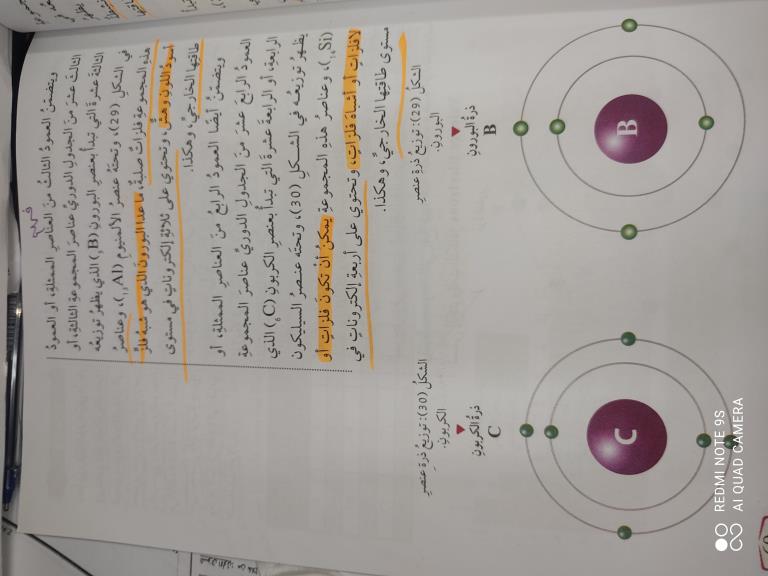 ويتضمنُ العمودُ الثالثُ من العناصرِ الممثلةِ، أو العمودُ
الثالثَ عشرَ من الجدولِ الدوريِّ عناصرَ المجموعةِ الثالثةِ، أو
الثالثةَ عشرةَ التي تبدأُ بعنصرِ البورونِ (₅B) الذي يظهرُ توزيعُه
في الشكلِ (29)، وتحتَهُ عنصرُ الألمنيومِ (₁₃Al)، وعناصرُ
هذه المجموعةِ فلزاتٌ صلبةٌ، ما عدا البورونَ الذي هو شبهُ فلزٍّ
أسودُ اللونِ وهشٌّ وتحتوي على ثلاثةِ إلكتروناتٍ في مستوى
طاقتِها الخارجيِّ، وهكذا.
ويتضمنُ أيضًا العمودُ الرابعُ من العناصرِ الممثلةِ، أو
العمودُ الرابعَ عشرَ من الجدولِ الدوريِّ عناصرَ المجموعةِ
الرابعةِ، أو الرابعةَ عشرةَ التي تبدأُ بعنصرِ الكربونِ (₆C) الذي
يظهرُ توزيعُه في الشكلِ (30)، وتحتَه عنصرُ السيليكون
(₁₄Si)، وعناصرُ هذه المجموعةِ يمكنُ أنْ تكونَ فلزاتٍ أو
لافلزاتٍ أو أشباهَ فلزاتٍ، وتحتوي على أربعةِ إلكتروناتٍ في
مستوى طاقتِها الخارجيِّ، وهكذا.
الشكلُ (29): توزيعُ ذرةِ عنصرِ
البورونِ.
ذرةُ البورونِ
B
B
الشكلُ (30): توزيعُ ذرةِ عنصرِ
الكربونِ.
ذرةُ الكربونِ
C
C
REDMI NOTE 9S
AI QUAD CAMERA